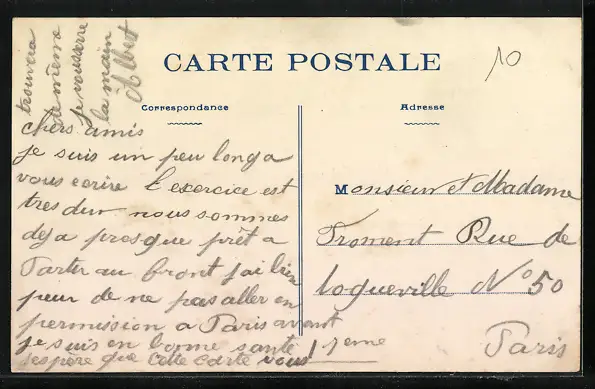 CARTE POSTALE
10
Correspondance
Adresse
chers amis
je suis un peu long a
vous ecrire l'exercice est
tres dur nous sommes
deja presque prêt a
Partir au front j'ai bien
peur de ne pas aller en
permission a Paris avant
je suis en bonne santé !
j'espère que cette carte vous
trouvera
de meme
je vous serre
la main
Albert
Monsieur et Madame
Froment Rue de
Loqueville N° 50
7eme
Paris